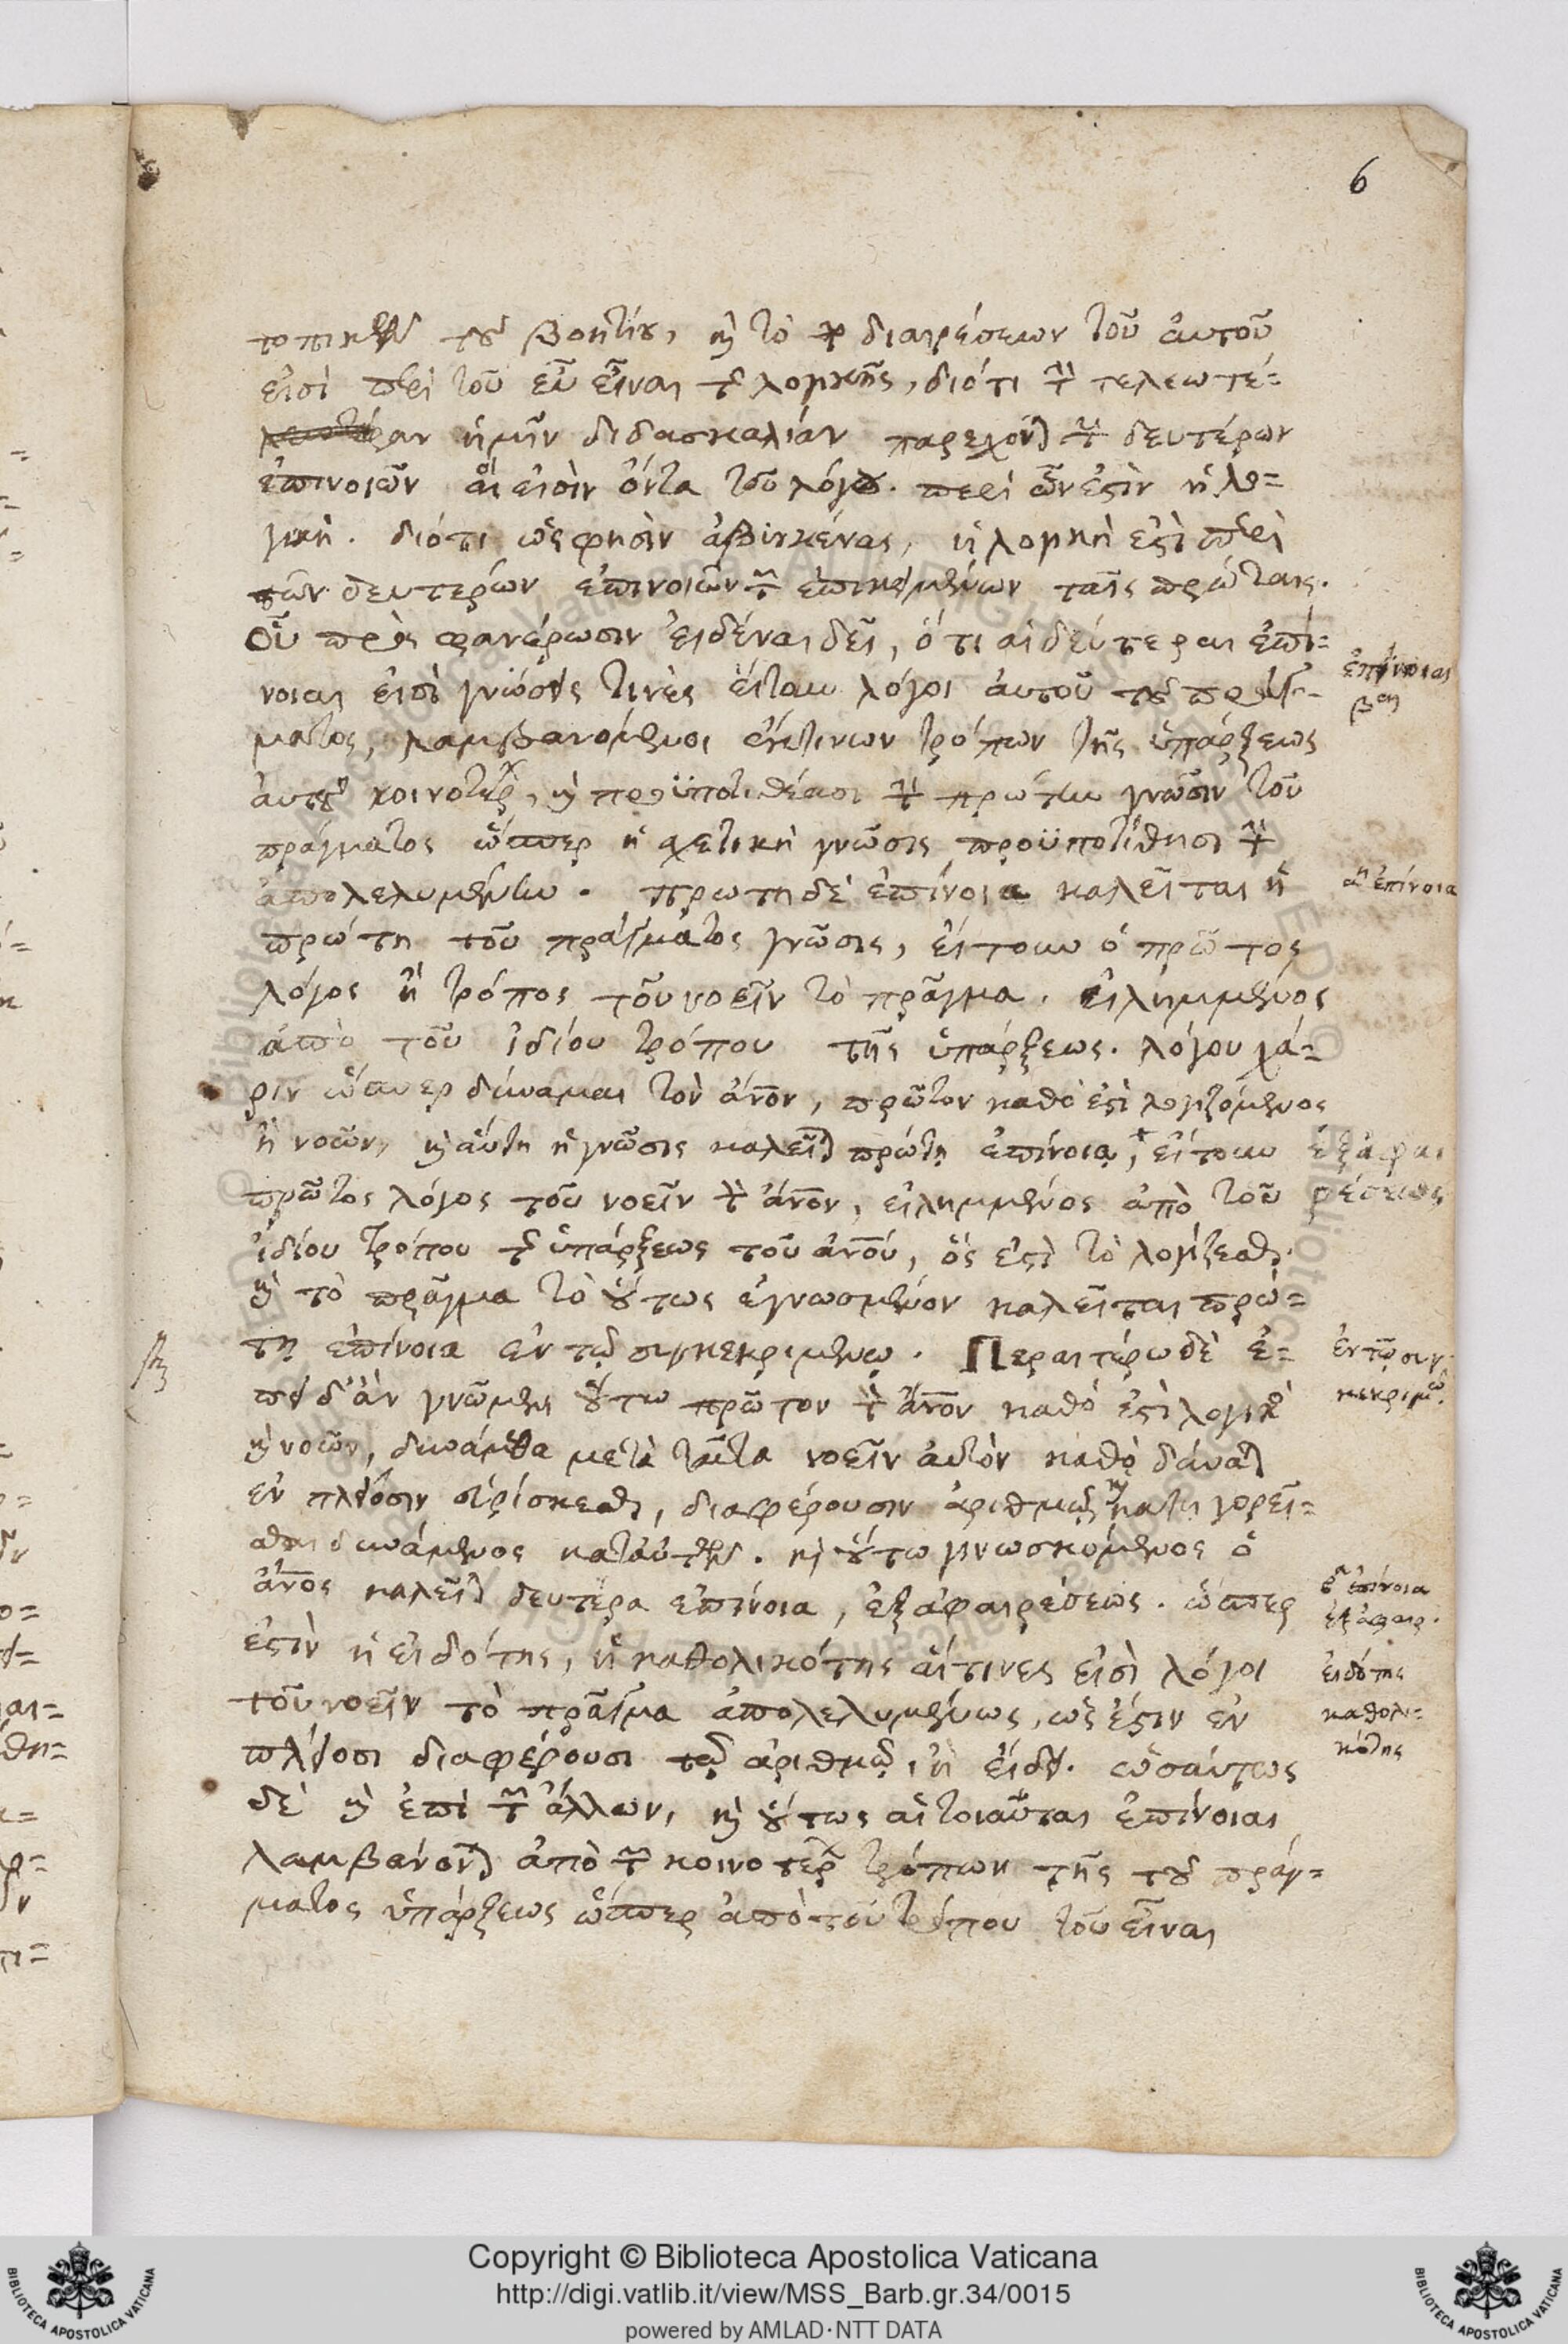 6
τοπικῶν τοῦ βοητίου, καὶ τὸ περὶ διαιρέσεων τοῦ ἀυτοῦ
εἰσὶ περὶ τοῦ εὖ εἶναι τῆς λογικῆς, διότι τὴν τελεωτέ=
ραν ἡμῖν διδασκαλίαν παρεχόνται τῶν δευτέρων
ἐπινοιῶν αἵ εἰσὶν ὄντα τοῦ λόγου. περὶ ὧν ἐστὶν ἡ λο=
γικὴ. διότι ὥς φησὶν ἀβικένας, ἡ λογικὴ ἐστὶ περὶ
τῶν δευτερών ἐπινοιῶν τῶν ἐπικειμένων ταῖς πρώταις.
Οὗ πρὸς φανέρωσιν εἰδέναι δεῖ, ὅτι αἱ δεύτεραι ἐπί=
νοιαι εἰσὶ γνώσεις τινὲς εἴτουν λόγοι ἀυτοῦ τοῦ πράγ=
ματος, λαμβανόμενοι ἔκτινων τρόπων τῆς ὑπάρξεως
ἀυτοῦ κοινοτέρων, καὶ προϋποτιθέασι τὴν πρώτην γνῶσιν τοῦ
πράγματος ὥσπερ ἡ σχετικὴ γνῶσις προϋποτίθησι τὴν
ἀπολελυμένην. πρωτη δὲ ἐπίνοια καλεῖται ἡ
πρώτη τοῦ πράγματος γνῶσις, εἴτουν ὁ πρῶτος
λόγος ἢ τρόπος τοῦ νοεῖν τὸ πρᾶγμα. εἰλημμένος
ἀπὸ τοῦ ἰδίου τρόπου τῆς ὑπάρξεως. λόγου χά=
ριν ὥσπερ δύναμαι τὸν ἄνον, πρῶτον καθὸ ἐστὶ λογιζόμενος
ἢ νοῶν, καὶ ἀύτη ἡ γνῶσις καλεῖται πρώτη ἐπίνοια, εἴτουν
πρῶτος λόγος τοῦ νοεῖν τὸν ἄνον, εἰλημμένος ἀπὸ τοῦ
ἰδίου τρόπου τῆς ὑπάρξεως τοῦ ἀνου, ὅς ἐστὶ τὸ λογίζεσθαι.
καὶ τὸ πρᾶγμα τὸ οὕτως ἐγνωσμένον καλεῖται πρώ=
τη ἐπίνοια ἐν τῷ συγκεκριμένῳ. Περαιτέρω δὲ ἐ=
πειδ' ἀν γνῶμεν οὕτω πρῶτον τὸν ἄνον καθό ἐστὶ λογικὸς
καὶ νοῶν, δυνάμεθα μετὰ ταῦτα νοεῖν αὐτὸν καθὸ δύναται
ἐν πλείοσιν εὑρίσκεσθαι, διαφέρουσιν ἀριθμῷ καὶ κατηγορεῖ=
σθαι δυνάμενος κατ' αὐτῶν. καὶ οὕτω γινωσκόμενος ὁ
ἄνος καλεῖται δευτέρα ἐπίνοια, ἐξ ἀφαιρέσεως. ὥσπερ
ἐστὶν ἡ εἰδότης, ἡ καθολικότης αἵτινες εἰσὶ λόγοι
τοῦ νοεῖν τὸ πρᾶγμα ἀπολελυμένως, ὡς ἔστιν ἐν
πλείοσι διαφέρουσι τῷ ἀριθμῷ, ἢ εἴδει. ὡσαύτως
δὲ καὶ ἐπὶ τῶν ἄλλων, καὶ οὕτως αἱ τοιαῦται ἐπίνοιαι
λαμβάνονται ἀπὸ τῶν κοινοτέρων τρόπων τῆς τοῦ πράγ=
ματος ὑπάρξεως ὥσπερ ἀπὸ τοῦ τρόπου τοῦ εἶναι
ἐπίνοιαι
βαι
αη ἐπίνοια
ἐξ ἀφαι
ρέσεως
ἐν τῷ συγ
κεκριμῳ.
βα ἐπίνοια
ἐξ ἀφαιρ.
εἰδότης
καθολι=
κότης